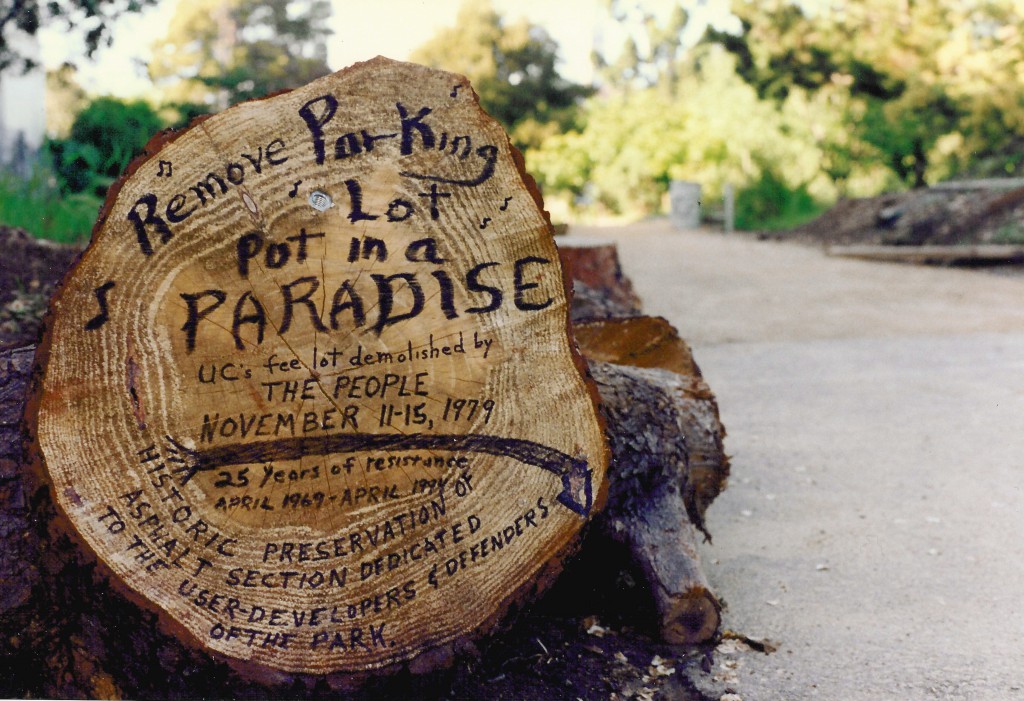 Remove Parking
Lot
Pot in a
PARADISE
UC's fee lot demolished by
THE PEOPLE
NOVEMBER 11-15, 1979
25 years of resistance
APRIL 1969 - APRIL 1994
HISTORIC PRESERVATION OF
ASPHALT SECTION DEDICATED
TO THE USER-DEVELOPERS & DEFENDERS
OF THE PARK.